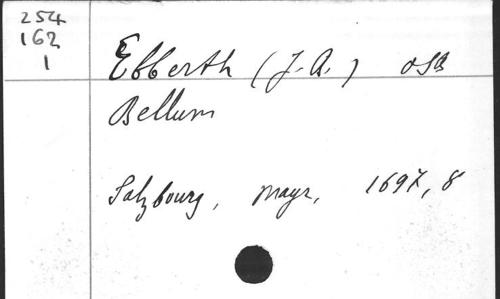 254
162
1
Ebberth (J. A.) OSB
Bellum
Salzbourg, Mayr, 1697, 8